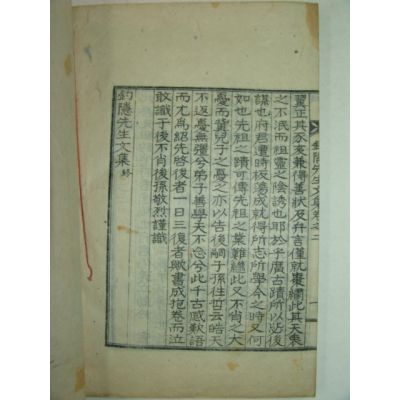 釣隱先生文集卷之二
翼正其豕亥兼得善狀及弁言僅就棗此其天衷
之不泯而祖靈之陰誘也耶於乎廣古蹟所以佑後
謀也府君遭時板蕩成就得所志所學今之時又何
如也先祖之蹟可傳先祖之業難繼此又不肖之大
憂而冀兒子之憂之亦以告後嗣子孫性哲云皓天
不返憂無疆兮弟子善學天不忘兮此千古感歎語
而尤爲紹先啓後者一日三復者歟書成抱卷而泣
敢識于後不肖後孫敬烈謹識
釣隱先生文集終